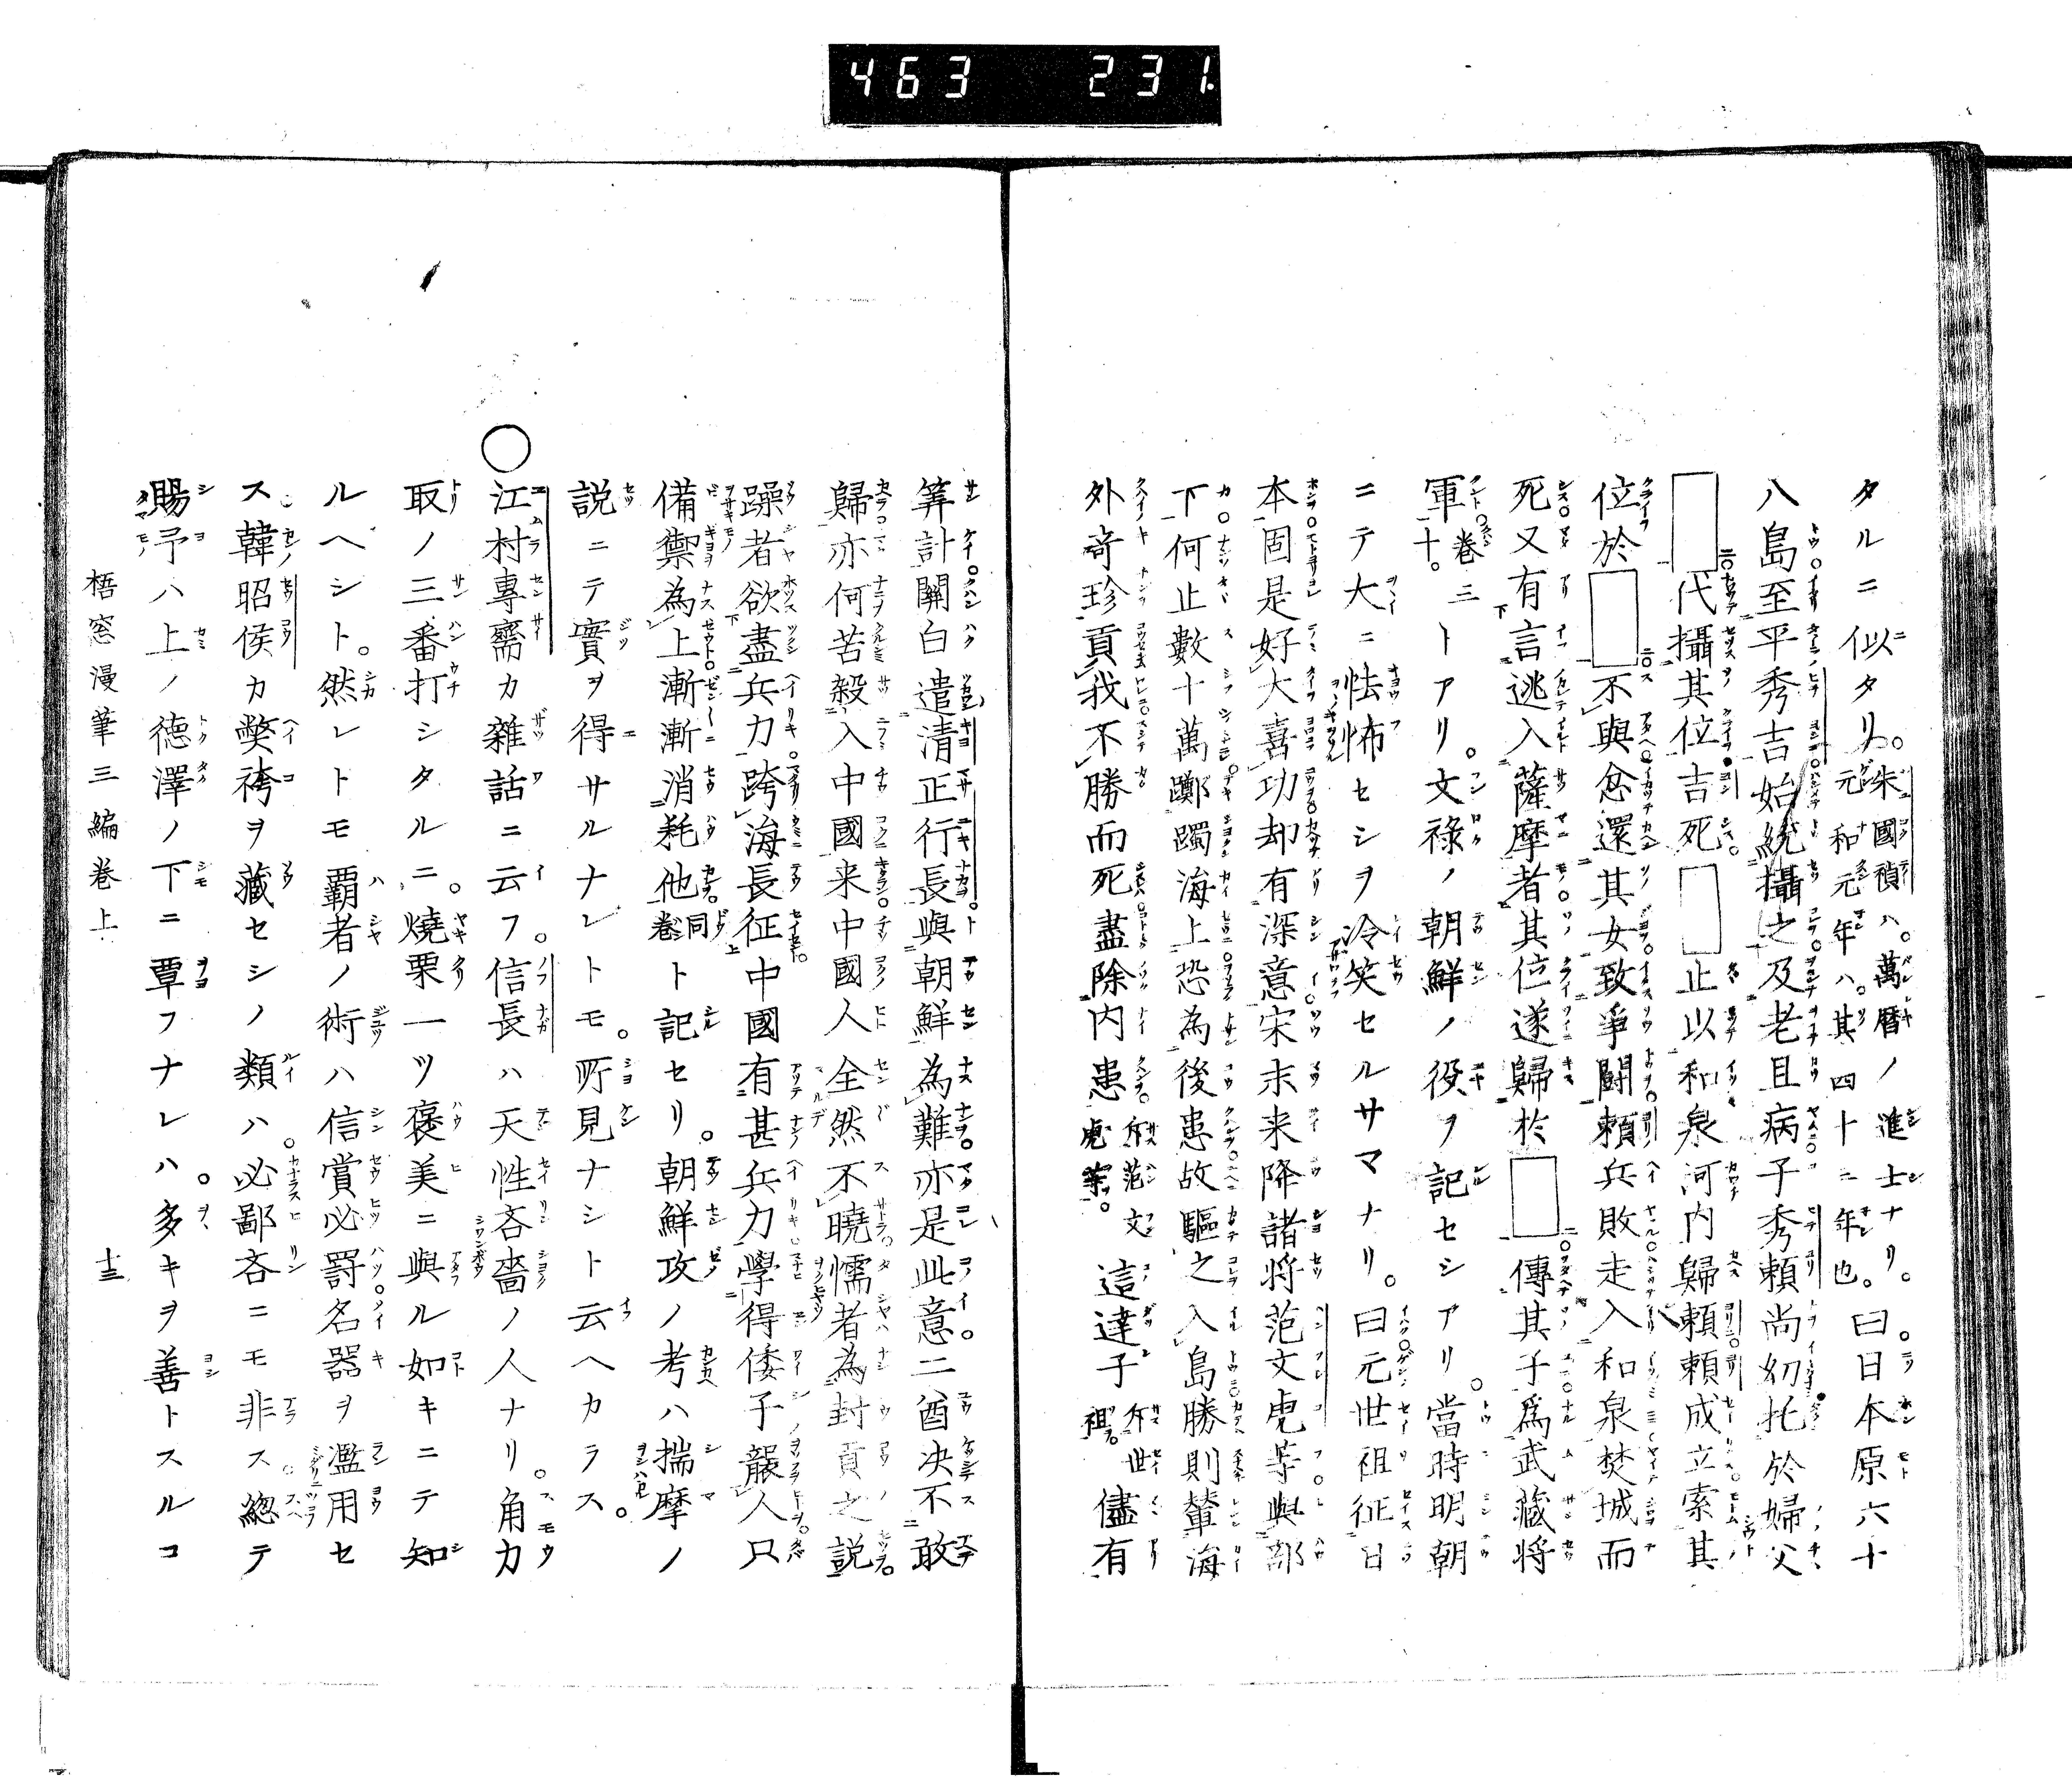 463 231
タルニ似タリ。朱國禎ハ。萬曆ノ進士ナリ。元和元年ハ。其四十二年也。曰日本原六十
八島至平秀吉始統攝之及老且病子秀頼尚幼托於婦父
代攝其位吉死 止以和泉河内歸頼頼成立索其
位於 不與忿還其女致爭鬪頼兵敗走入和泉焚城而
死又有言逃入薩摩者其位遂歸於 傳其子爲武藏将
軍卷三十。トアリ。文祿ノ朝鮮ノ役ヲ記セシアリ。當時明朝
ニテ大ニ怯怖セシヲ冷笑セルサマナリ。曰元世祖征日
本固是好大喜功却有深意宋末来降諸将范文虎等與部
下何止數十萬躑躅海上恐為後患故驅之入島勝則輦海
外竒珍貢我不勝而死盡除内患斥范文虎等。這達子斥世祖。儘有
筭計關白遣清正行長與朝鮮為難亦是此意二酋决不敢
歸亦何苦殺入中國来中國人全然不曉懦者為封貢之説
躁者欲盡兵力跨海長征中國有甚兵力學得倭子嚴人只
備禦為上漸漸消耗他同上卷ト記セリ。朝鮮攻ノ考ハ揣摩ノ
説ニテ實ヲ得サルナレトモ。所見ナシト云ヘカラス。
○江村專齋カ雜話ニ云フ。信長ハ天性吝嗇ノ人ナリ。角力
取ノ三番打シタルニ。燒栗一ツ褒美ニ與ル如キニテ知
ルヘシト。然レトモ覇者ノ術ハ信賞必罰名器ヲ濫用セ
ス。韓昭侯カ獘袴ヲ藏セシノ類ハ。必鄙吝ニモ非ス。總テ
賜予ハ上ノ德澤ノ下ニ覃フナレハ。多キヲ善トスルコ
梧窓漫筆三編卷上 十三